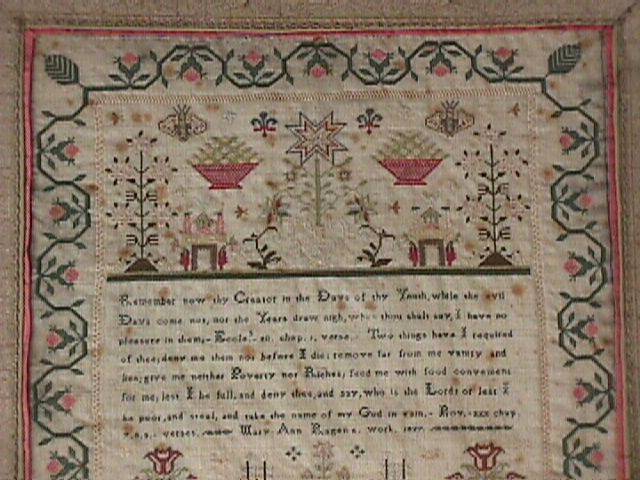 Remember now thy Creator in the Days of thy Youth, while the evil
Days come not, nor the Years draw nigh, when thou shalt say, I have no
pleasure in them,- Eccle! xii. chap. 1. verse.- Two things have I required
of thee; deny me them not before I die; remove far from me vanity and
lies; give me neither Poverty nor Riches; feed me with food convenient
for me, lest I be full, and deny thee, and say, who is the Lord? or lest I
be poor, and steal, and take the name of my God in vain.- Prov.- xxx chap
7.8.9.- verses. Mary Ann work